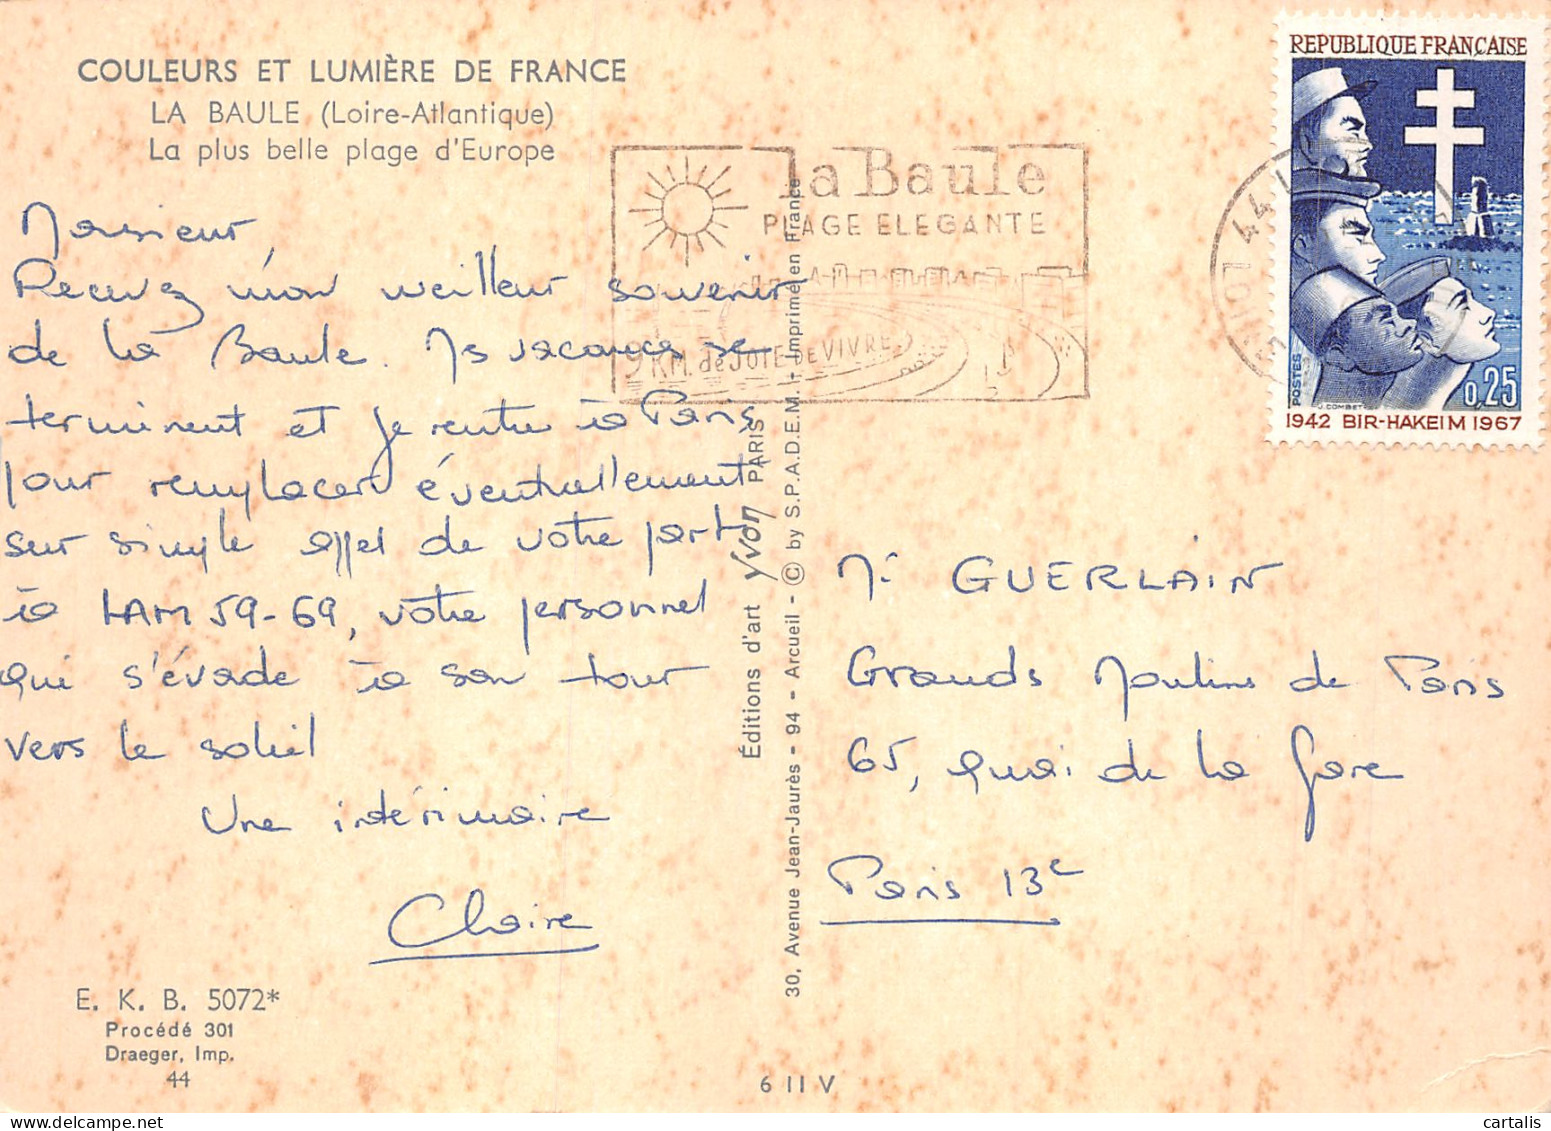 COULEURS ET LUMIÈRE DE FRANCE
LA BAULE (Loire-Atlantique)
La plus belle plage d'Europe
Monsieur
Recevez mon meilleur souvenir
de la Baule. Mes vacances se
terminent et je rentre à Paris
pour remplacer éventuellement
sur simple appel de votre part
à LAM 59-69, votre personnel
qui s'évade à son tour
vers le soleil
Une intérimaire
Claire
E. K. B. 5072*
Procédé 301
Draeger, Imp.
44
la Baule
PLAGE ELEGANTE
9 KM. de JOIE DE VIVRE
Éditions d'art yvon PARIS
30, Avenue Jean-Jaurès - 94 - Arcueil - © by S.P.A.D.E.M. - Imprimé en France
6 II V
REPUBLIQUE FRANÇAISE
POSTES
0,25
J.COMBET
1942 BIR-HAKEIM 1967
44
M. GUERLAIN
Grands Moulins de Paris
65, Quai de la Gare
Paris 13e
cartalis